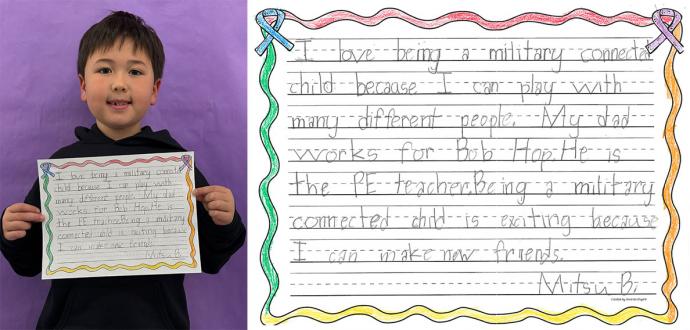 I love being a military connected
child because I can play with
many different people. My dad
works for Bob Hop. He is
the PE teacher. Being a military
connected child is exciting because
I can make new friends.
Mitsu B.